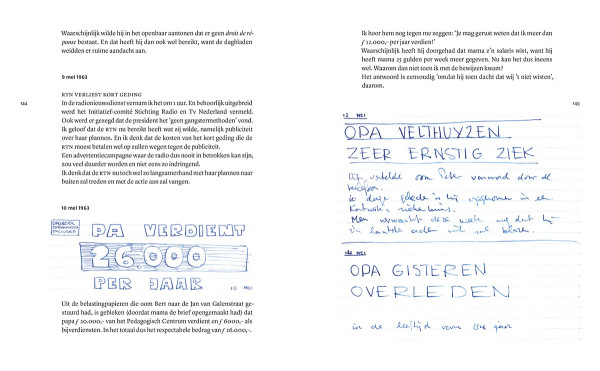 Waarschijnlijk wilde hij in het openbaar aantonen dat er geen droit de ré-
ponse bestaat. En dat heeft hij dan ook wel bereikt, want de dagbladen
weidden er ruime aandacht aan.
9 mei 1963
144
RTN VERLIEST KORT GEDING
In de radionieuwsdienst vernam ik het om 1 uur. En behoorlijk uitgebreid
werd het Initiatief-comité Stichting Radio en Tv Nederland vermeld.
Ook werd er gezegd dat de president het 'geen gangstermethoden' vond.
Ik geloof dat de RTN nu bereikt heeft wat zij wilde, namelijk publiciteit
over haar plannen. En ik denk dat de kosten van het kort geding die de
RTN moest betalen wel op zullen wegen tegen de publiciteit.
Een advertentiecampagne waar de radio dus nooit in betrokken kan zijn,
zou veel duurder worden en niet eens zo indringend.
Ik denk dat de RTN nu toch wel zo langzamerhand met haar plannen naar
buiten zal treden en met de actie aan zal vangen.
10 mei 1963
PA VERDIENT
26.000
PER JAAR
10 MEI
Uit de belastingpapieren die oom Bert naar de Jan van Galenstraat ge-
stuurd had, is gebleken (doordat mama de brief opengemaakt had) dat
papa ƒ 20.000,- van het Pedagogisch Centrum verdient en ƒ 6000,- als
bijverdiensten. In het totaal dus het respectabele bedrag van ƒ 26.000,-.
Ik hoor hem nog tegen me zeggen: 'Je mag gerust weten dat ik meer dan
ƒ 12.000,- per jaar verdien!'
Waarschijnlijk heeft hij doorgehad dat mama z'n salaris wist, want hij
heeft mama 25 gulden per week meer gegeven. Nu kan het dus ineens
wel. Waarom dan niet toen ik met de bewijzen kwam?
Het antwoord is eenvoudig 'omdat hij toen dacht dat wij 't niet wisten',
daarom.
145
12 MEI
OPA VELTHUYZEN
ZEER ERNSTIG ZIEK
vertelde oom Peter vanavond door de
telefoon.
in een
Men verwacht deze week nog dat hij
MEI
OPA GISTEREN
OVERLEDEN
in de leeftijd van jaar